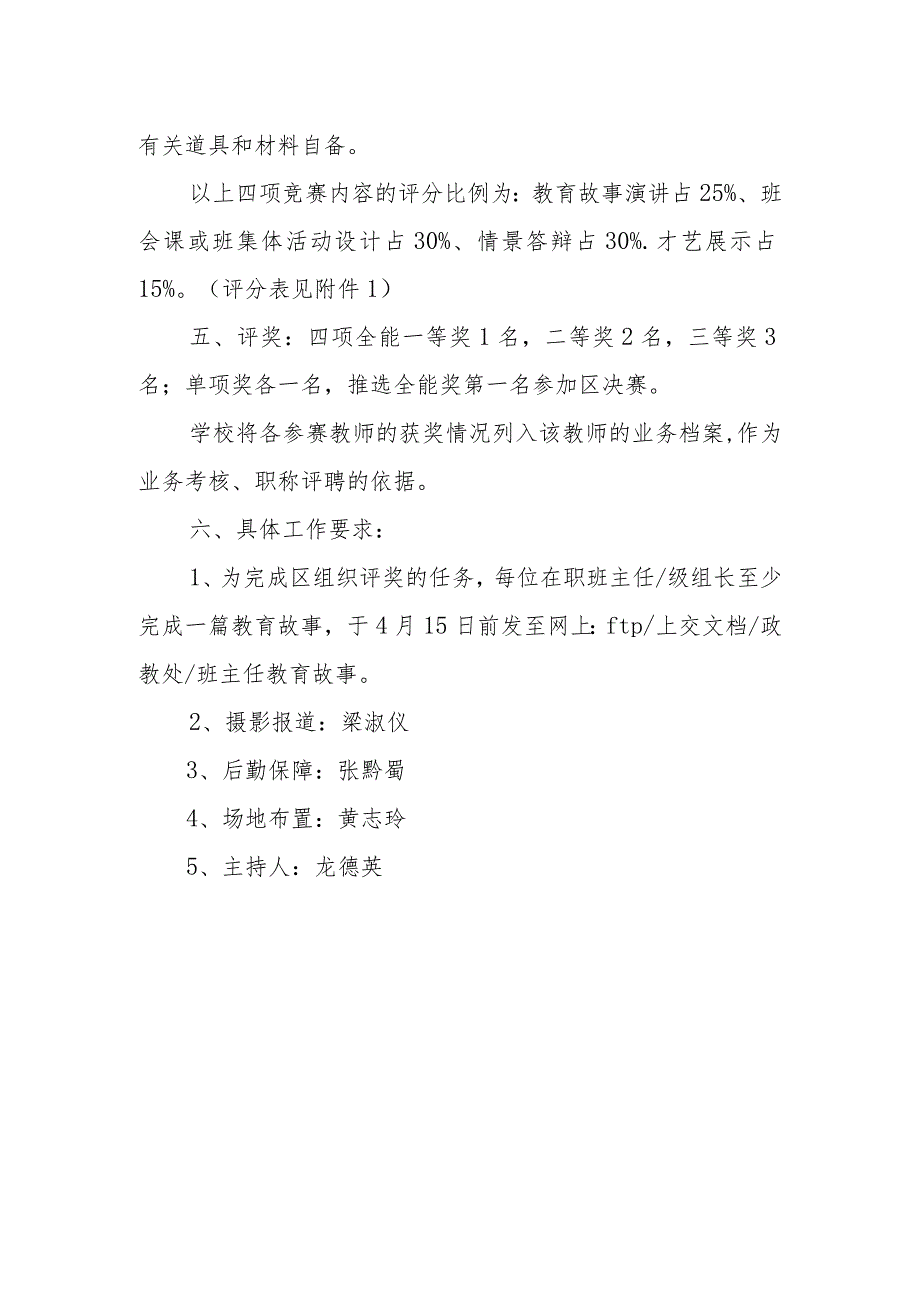 有关道具和材料自备。
以上四项竞赛内容的评分比例为：教育故事演讲占25%、班
会课或班集体活动设计占30%、情景答辩占30%.才艺展示占
15%。（评分表见附件1）
五、评奖：四项全能一等奖1名，二等奖2名，三等奖3
名；单项奖各一名，推选全能奖第一名参加区决赛。
学校将各参赛教师的获奖情况列入该教师的业务档案,作为
业务考核、职称评聘的依据。
六、具体工作要求：
1、为完成区组织评奖的任务，每位在职班主任/级组长至少
完成一篇教育故事，于4月15日前发至网上：ftp/上交文档/政
教处/班主任教育故事。
2、摄影报道：梁淑仪
3、后勤保障：张黔蜀
4、场地布置：黄志玲
5、主持人：龙德英